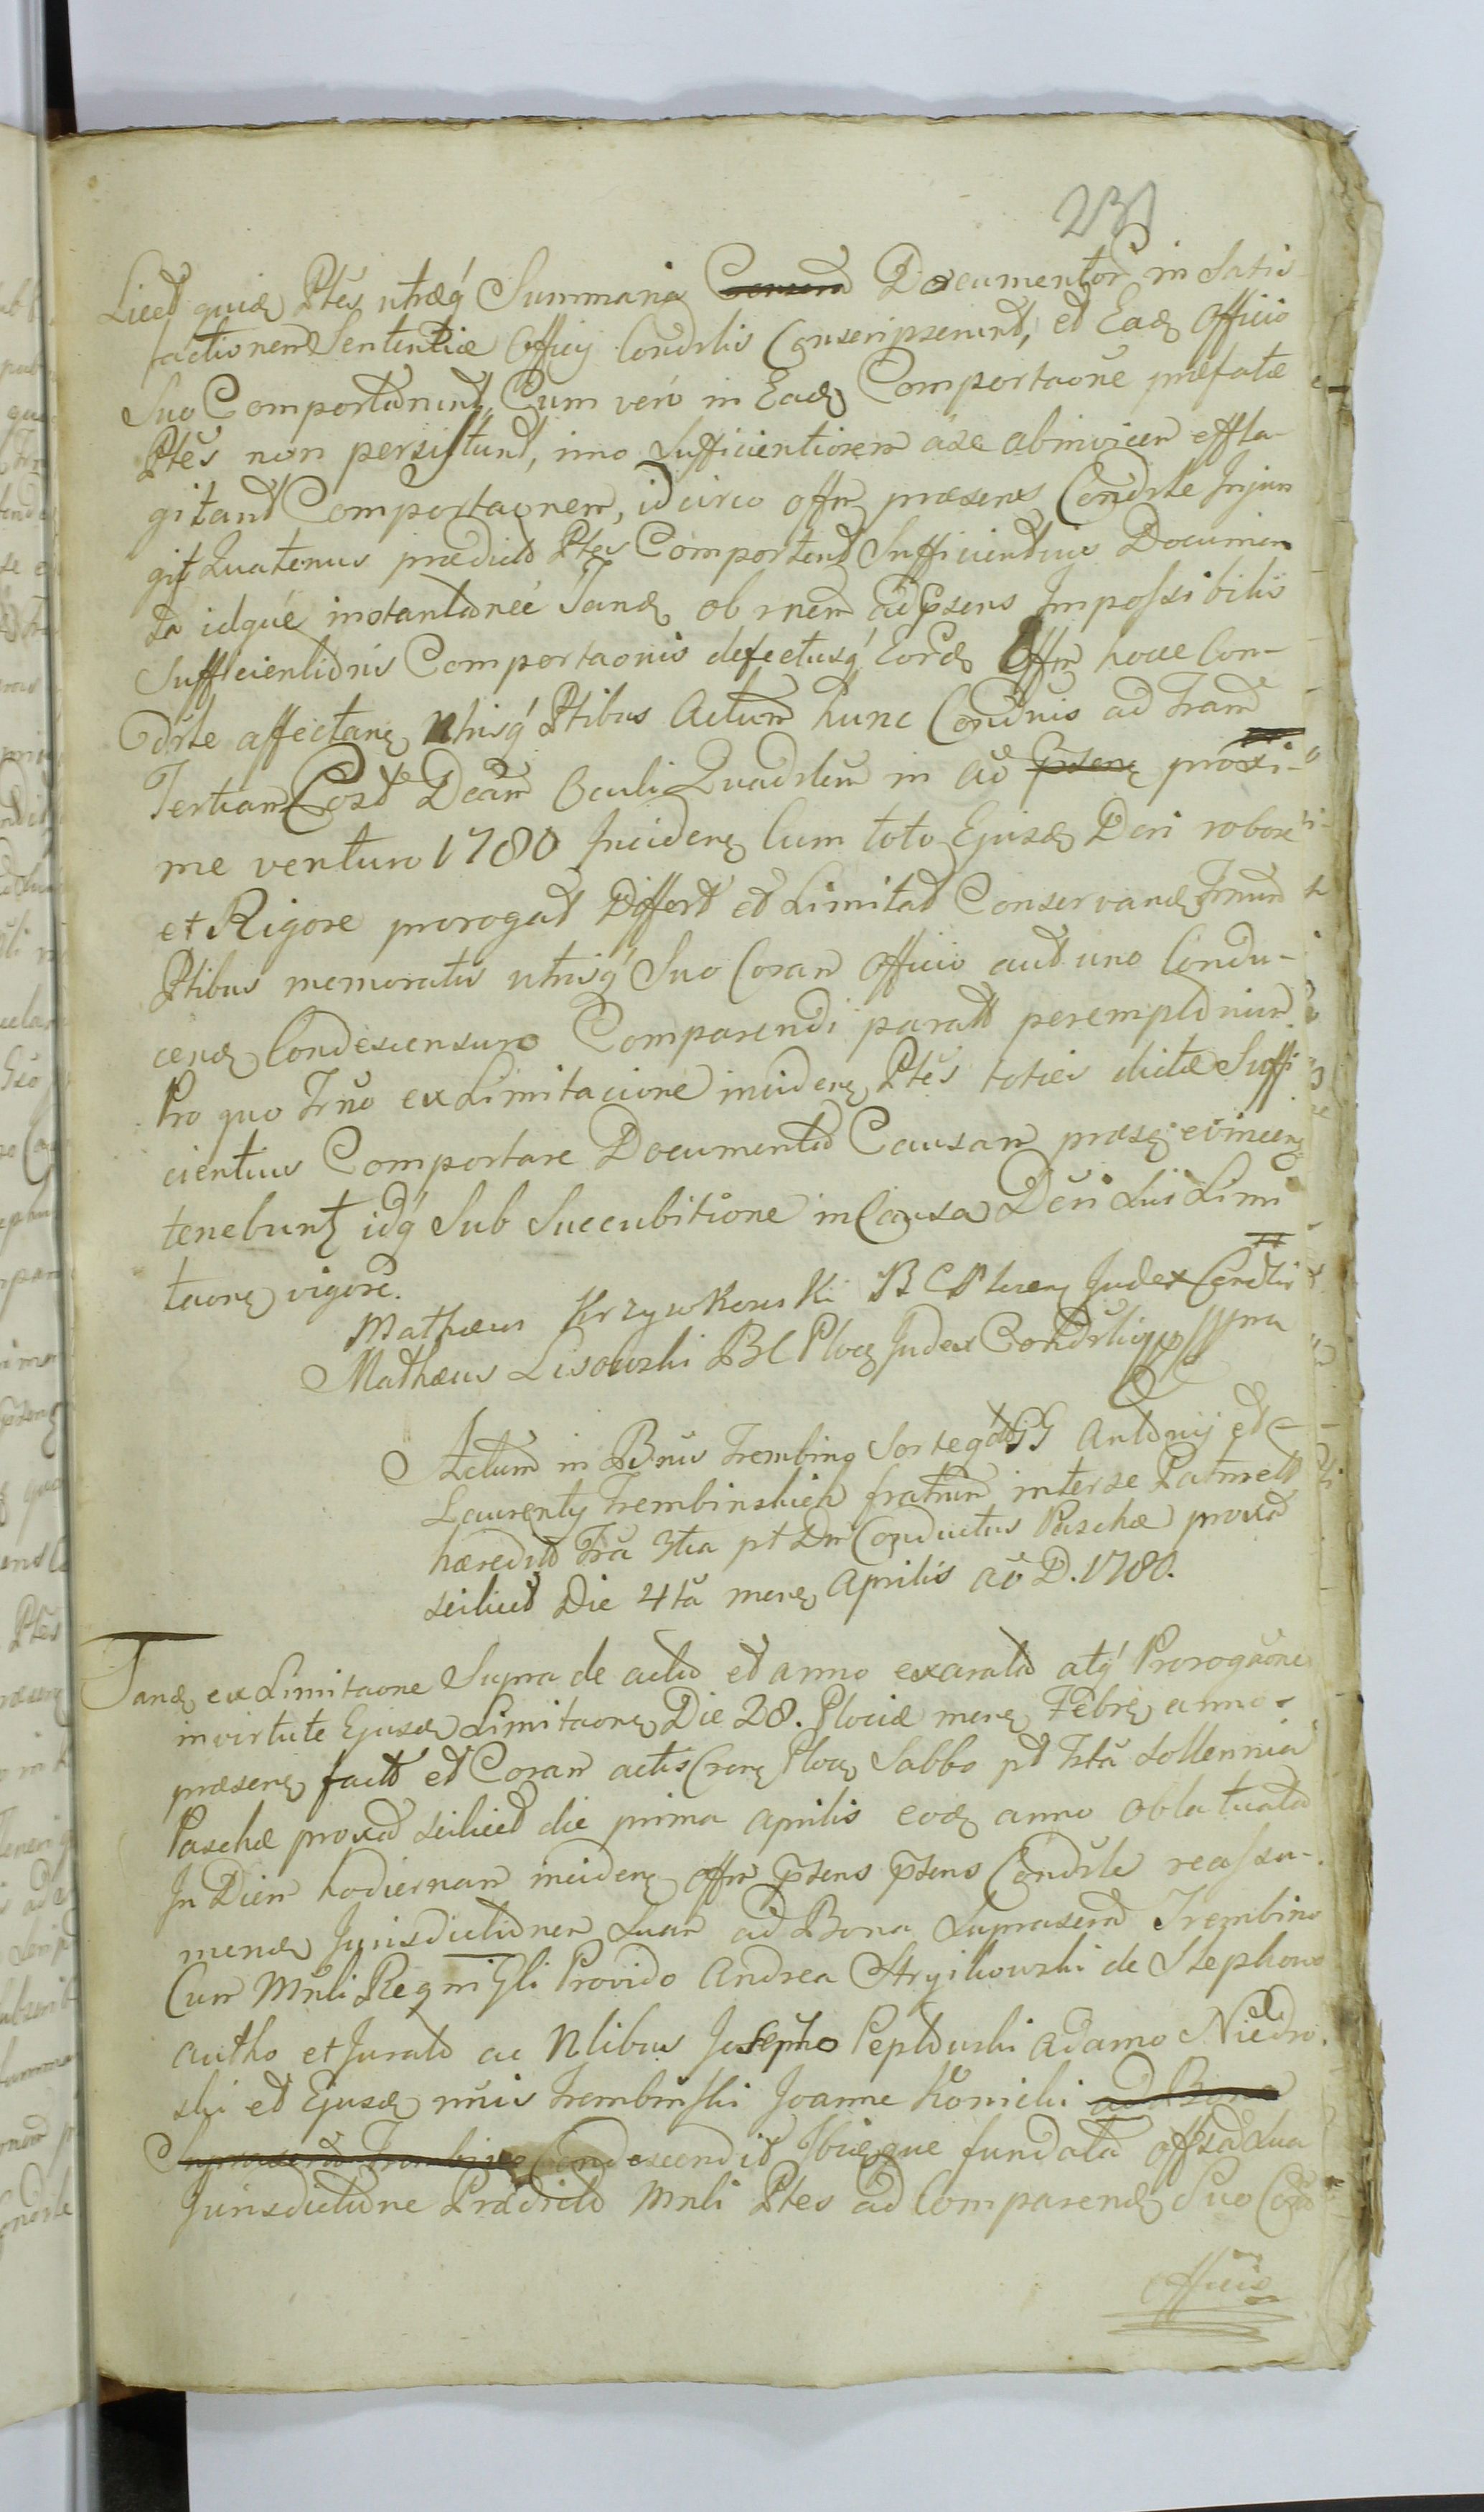 231
Licet quidę Ptes utræq́ Summaria Documentor in Satis
factionem Sententiæ Officij Condrlis Conscripserunt, et Eadę Officio
Suo Comportarunt, Cum verò in Eadę Comportaone præfatæ
Ptes non persistunt, imo Sufficientiorem abinvicem effla-
gitant Comportaonem, idcirco Offm præsens Condrle Injun
git Quatenus prædict Ptes Comportent Sufficientius Documen
ta idque instantaneé Tandę ob rnem ad Psens Impossibilis
Sufficientioris Comportaonis defectusq́ Eordę Offm hocce Con-
drle affectanę Utrisq́ Ptibus Actum hunc Condnis ad Fram
Tertiam Post Dcam Oculi Quadrlem in Aō proxi-
me venturo 1780 Incidenę Cum toto Ejusdę Dcri robore
et Rigore prorogat Differt et Limitat Conservandę Trnum
Ptibus memoratis utrisq́ Suo Coram Officio aut uno Condu-
cendę Condescensuro Comparendi paratt peremptorium
Pro quo Trno ex Limitacione incidenę Ptes toties dictæ Suffi
cientius Comportare Documenta Causam præsę evincenę
tenebuntę idq́ Sub Succubitione in Causa Dcri Suis Limi
taonę vigore.
Mathæus Krzywkowski B C Plocenę Judex Condrlis
Mathæus Lisowski BC Plocę Judex Condrlis mpp
Actum in Bnis Trembino Sorte GG Antonij et
Laurenty Trembinskich fratrum inter se
hæredit Fra 3tia pt Dm Conductus Paschæ proxa
scilicet Die 4ta menę Aprilis Aō D. 1780.
Tandę ex Limitaone Supra de actu et anno exarata atq́ Prorogaone
in virtute Ejusdę Limitaonę Die 28. Plociæ menę Febrę anno
præsenę fact et Coram actis Plocę Sabbo pt Fsta Sollennia
Paschæ proxa scilicet die prima Aprilis eodę anno oblatuata
In Diem hodiernam incidenę Offm Psens Condrle reassu-
mendę Jurisdictionem Suam ad Bona Suprascrid Trembino
Cum Mnli Regni Gli Provido Andrea Stryikowski de Stephowo
autho et Jurato ac Nlibus Josepho Peplowski Adamo Niedro
ski et Ejusdę mnis Trembinski Joanne Konicki ad Bona
Suprascrid Trembino Condescendit Ibidęque fundata Offsa Sua
Jurisdictione Prædicto Mnli Ptes ad Comparendę Suo Corā
Officio